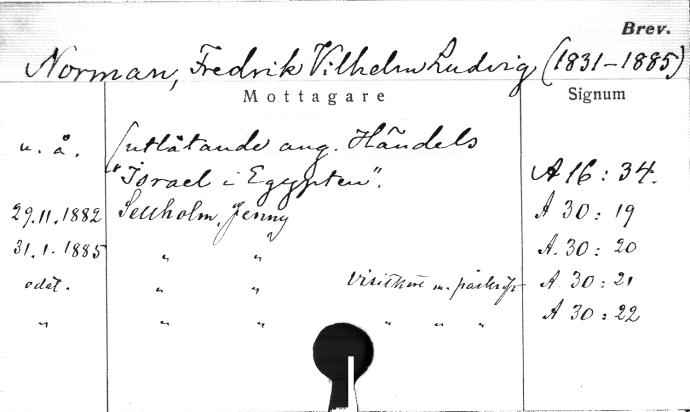 Brev.
Norman, Fredrik Vilhelm Ludvig (1831-1885)
Mottagare Signum
u. å. (utlåtande ang. Händels
"Israel i Egypten". A 16 : 34.
29.11.1882 Sellholm, Jenny A 30 : 19
31.1.1885 " " A. 30 : 20
odat. " " Visitkort m. påskrift A. 30 : 21
" " " " " " A 30 : 22